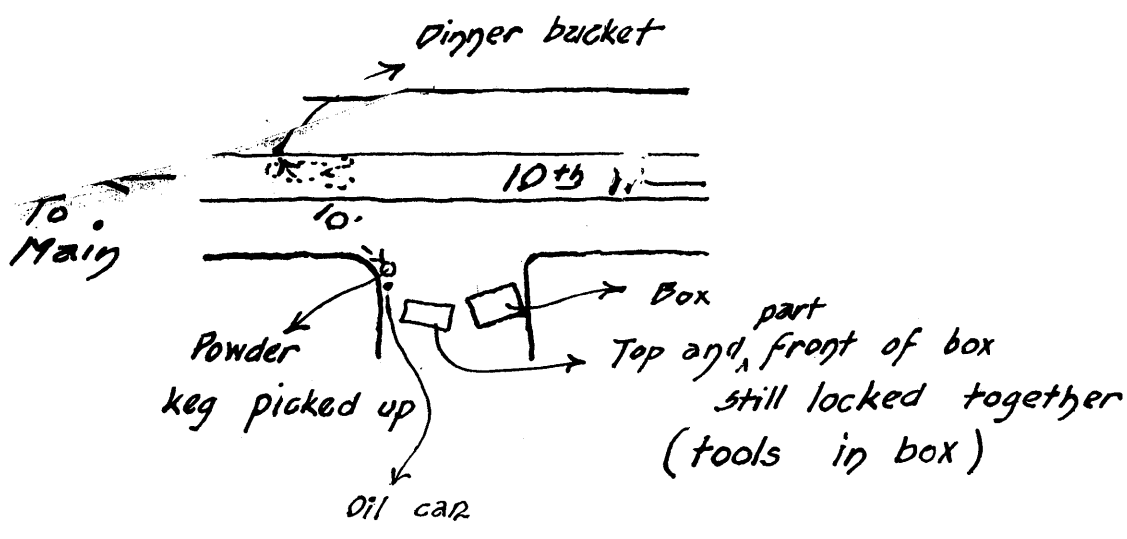 Dinner bucket
10th
To
Main
10.
Box
Powder
keg picked up
part
Top and ‸ front of box
still locked together
(tools in box)
Oil can